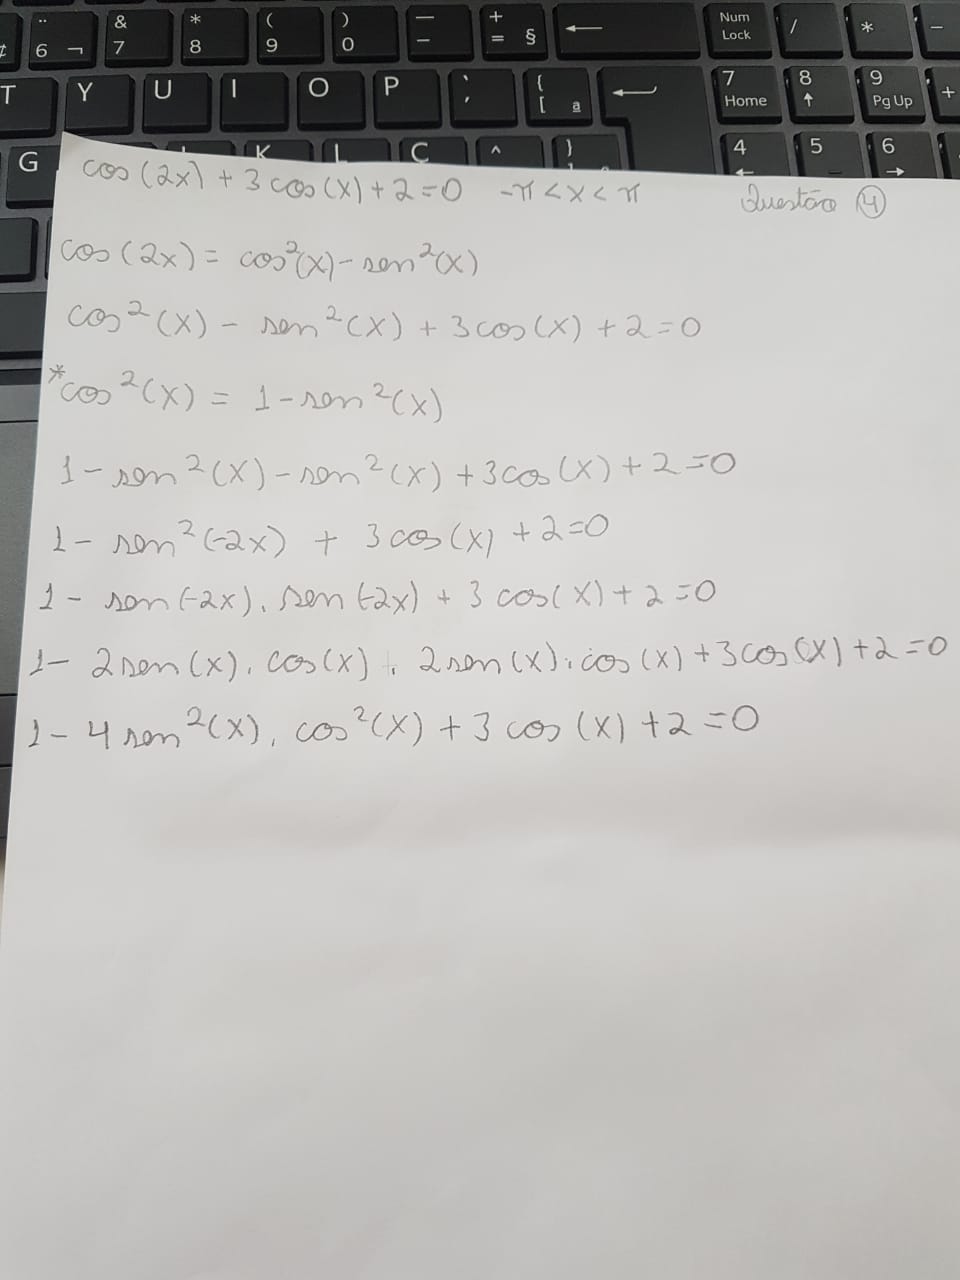 ¨ & * ( ) — + ← Num / * -
6 ¬ 7 8 9 0 - = § Lock
T Y U I O P ` { 7 8 9 +
' [ ª Home ↑ Pg Up
G K L Ç ^ } 4 5 6
← →
cos(2x) + 3cos(x) + 2 = 0 -π < x < π Questão 4
cos(2x) = cos²(x) - sen²(x)
cos²(x) - sen²(x) + 3cos(x) + 2 = 0
*cos²(x) = 1 - sen²(x)
1 - sen²(x) - sen²(x) + 3cos(x) + 2 = 0
1 - sen²(-2x) + 3cos(x) + 2 = 0
1 - sen(-2x) . sen(-2x) + 3cos(x) + 2 = 0
1 - 2sen(x) . cos(x) . 2sen(x) . cos(x) + 3cos(x) + 2 = 0
1 - 4sen²(x) . cos²(x) + 3cos(x) + 2 = 0